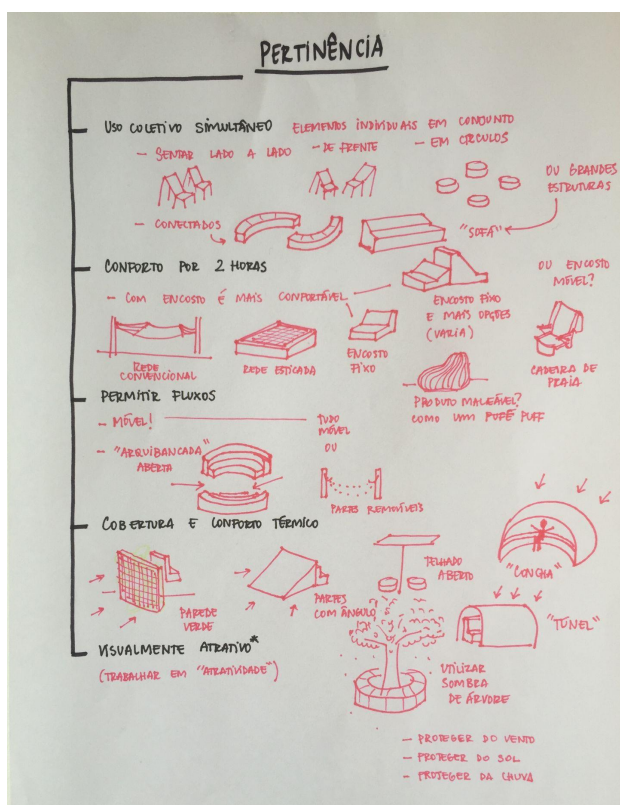 PERTINÊNCIA
USO COLETIVO SIMULTÂNEO ELEMENTOS INDIVIDUAIS EM CONJUNTO
- SENTAR LADO A LADO - DE FRENTE - EM CÍRCULOS
OU GRANDES
ESTRUTURAS
- CONECTADOS
"SOFÁ"
CONFORTO POR 2 HORAS
- COM ENCOSTO É MAIS CONFORTÁVEL
ENCOSTO FIXO
E MAIS OPÇÕES
(VARIA)
OU ENCOSTO
MÓVEL?
REDE
CONVENCIONAL
REDE ESTICADA
ENCOSTO
FIXO
CADEIRA DE
PRAIA
PRODUTO MALEÁVEL?
COMO UM PUFÊ PUFF
PERMITIR FLUXOS
- MÓVEL!
TUDO
MÓVEL
OU
- "ARQUIBANCADA"
ABERTA
PARTES REMOVÍVEIS
COBERTURA E CONFORTO TÉRMICO
PAREDE
VERDE
PARTES
COM ÂNGULO
TELHADO
ABERTO
"CONCHA"
"TÚNEL"
UTILIZAR
SOMBRA
DE ÁRVORE
VISUALMENTE ATRATIVO*
(TRABALHAR EM "ATRATIVIDADE")
- PROTEGER DO VENTO
- PROTEGER DO SOL
- PROTEGER DA CHUVA